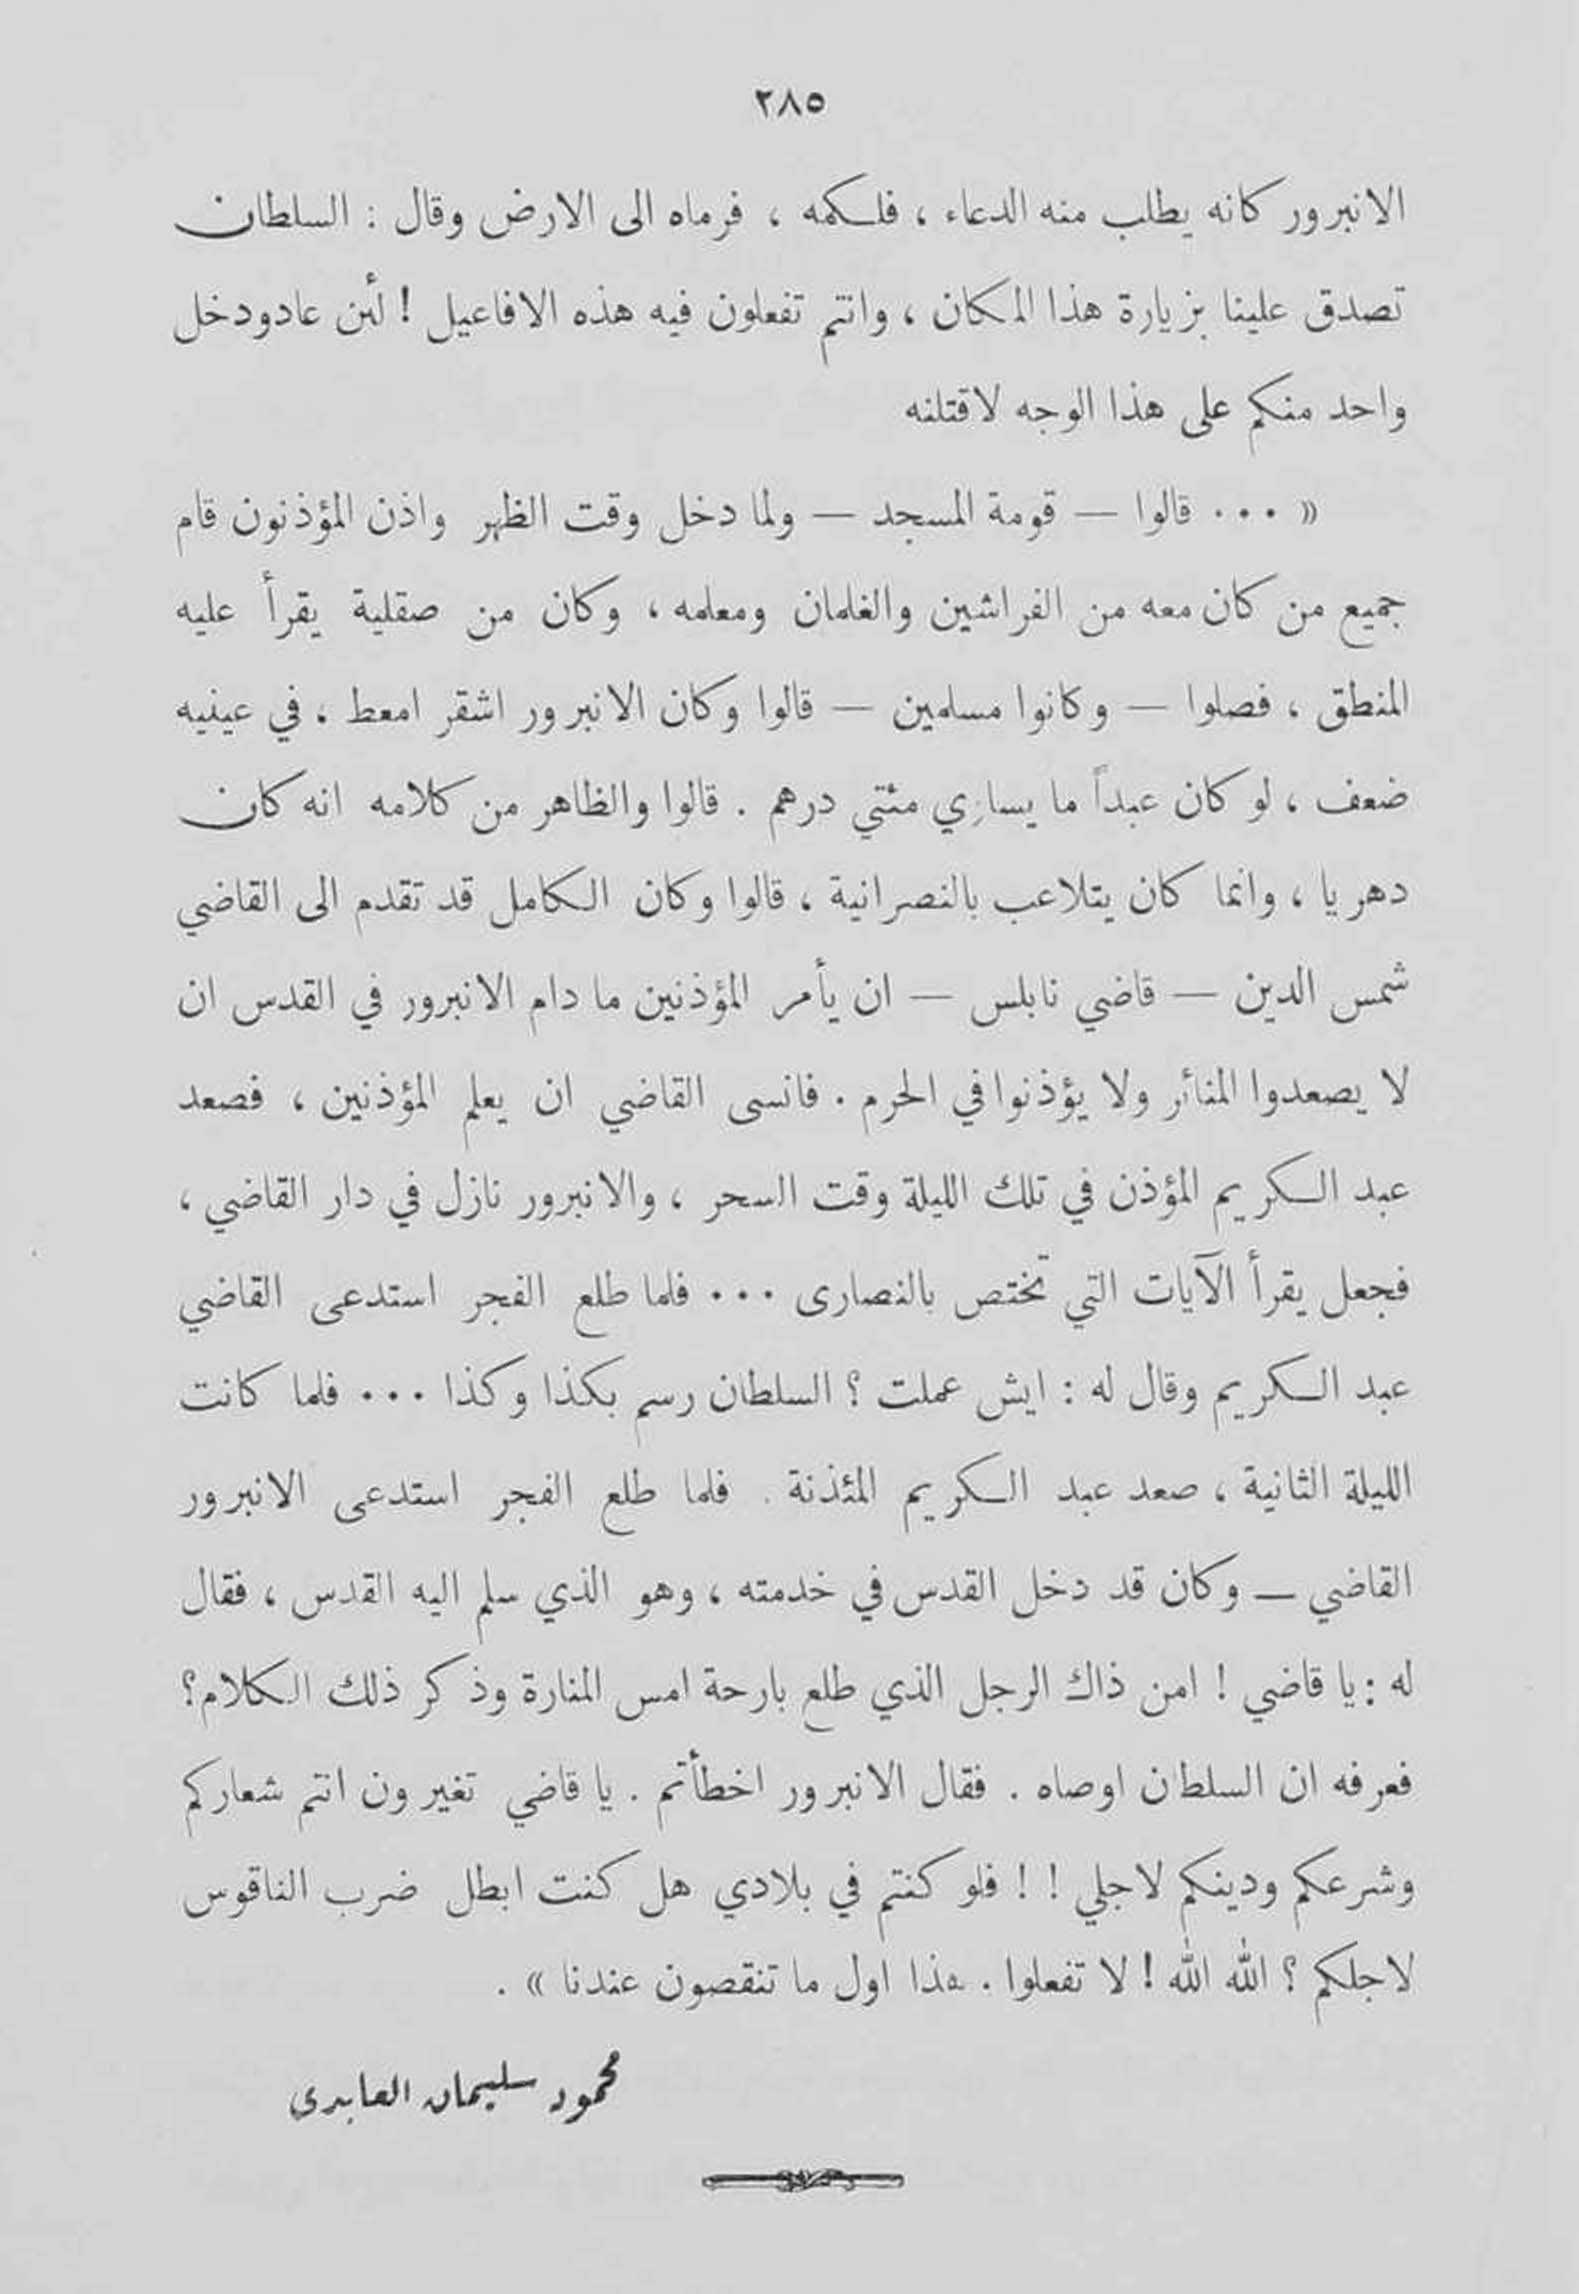 ٢٨٥
الانبرور كانه يطلب منه الدعاء ، فلكمه ، فرماه الى الارض وقال : السلطان
تصدق علينا بزيارة هذا المكان ، وانتم تفعلون فيه هذه الافاعيل ! لئن عادودخل
واحد منكم على هذا الوجه لاقتلنه
« ... قالوا — قومة المسجد — ولما دخل وقت الظهر واذن المؤذنون قام
جميع من كان معه من الفراشين والغلمان ومعلمه ، وكان من صقلية يقرأ عليه
المنطق ، فصلوا — وكانوا مسلمين — قالوا وكان الانبرور اشقر امعط ، في عينيه
ضعف ، لو كان عبداً ما يساوي مئتي درهم . قالوا والظاهر من كلامه انه كان
دهريا ، وانما كان يتلاعب بالنصرانية ، قالوا وكان الكامل قد تقدم الى القاضي
شمس الدين — قاضي نابلس — ان يأمر المؤذنين ما دام الانبرور في القدس ان
لا يصعدوا المنائر ولا يؤذنوا في الحرم . فانسى القاضي ان يعلم المؤذنين ، فصعد
عبد الكريم المؤذن في تلك الليلة وقت السحر ، والانبرور نازل في دار القاضي ،
فجعل يقرأ الآيات التي تختص بالنصارى ... فلما طلع الفجر استدعى القاضي
عبد الكريم وقال له : ايش عملت ؟ السلطان رسم بكذا وكذا ... فلما كانت
الليلة الثانية ، صعد عبد الكريم المئذنة . فلما طلع الفجر استدعى الانبرور
القاضي — وكان قد دخل القدس في خدمته ، وهو الذي سلم اليه القدس ، فقال
له : يا قاضي ! امن ذاك الرجل الذي طلع بارحة امس المنارة وذكر ذلك الكلام؟
فعرفه ان السلطان اوصاه . فقال الانبرور اخطأتم . يا قاضي تغيرون انتم شعاركم
وشرعكم ودينكم لاجلي ! ! فلو كنتم في بلادي هل كنت ابطل ضرب الناقوس
لاجلكم ؟ الله الله ! لا تفعلوا . هذا اول ما تنقصون عندنا » .
محمود سليمان العابدى